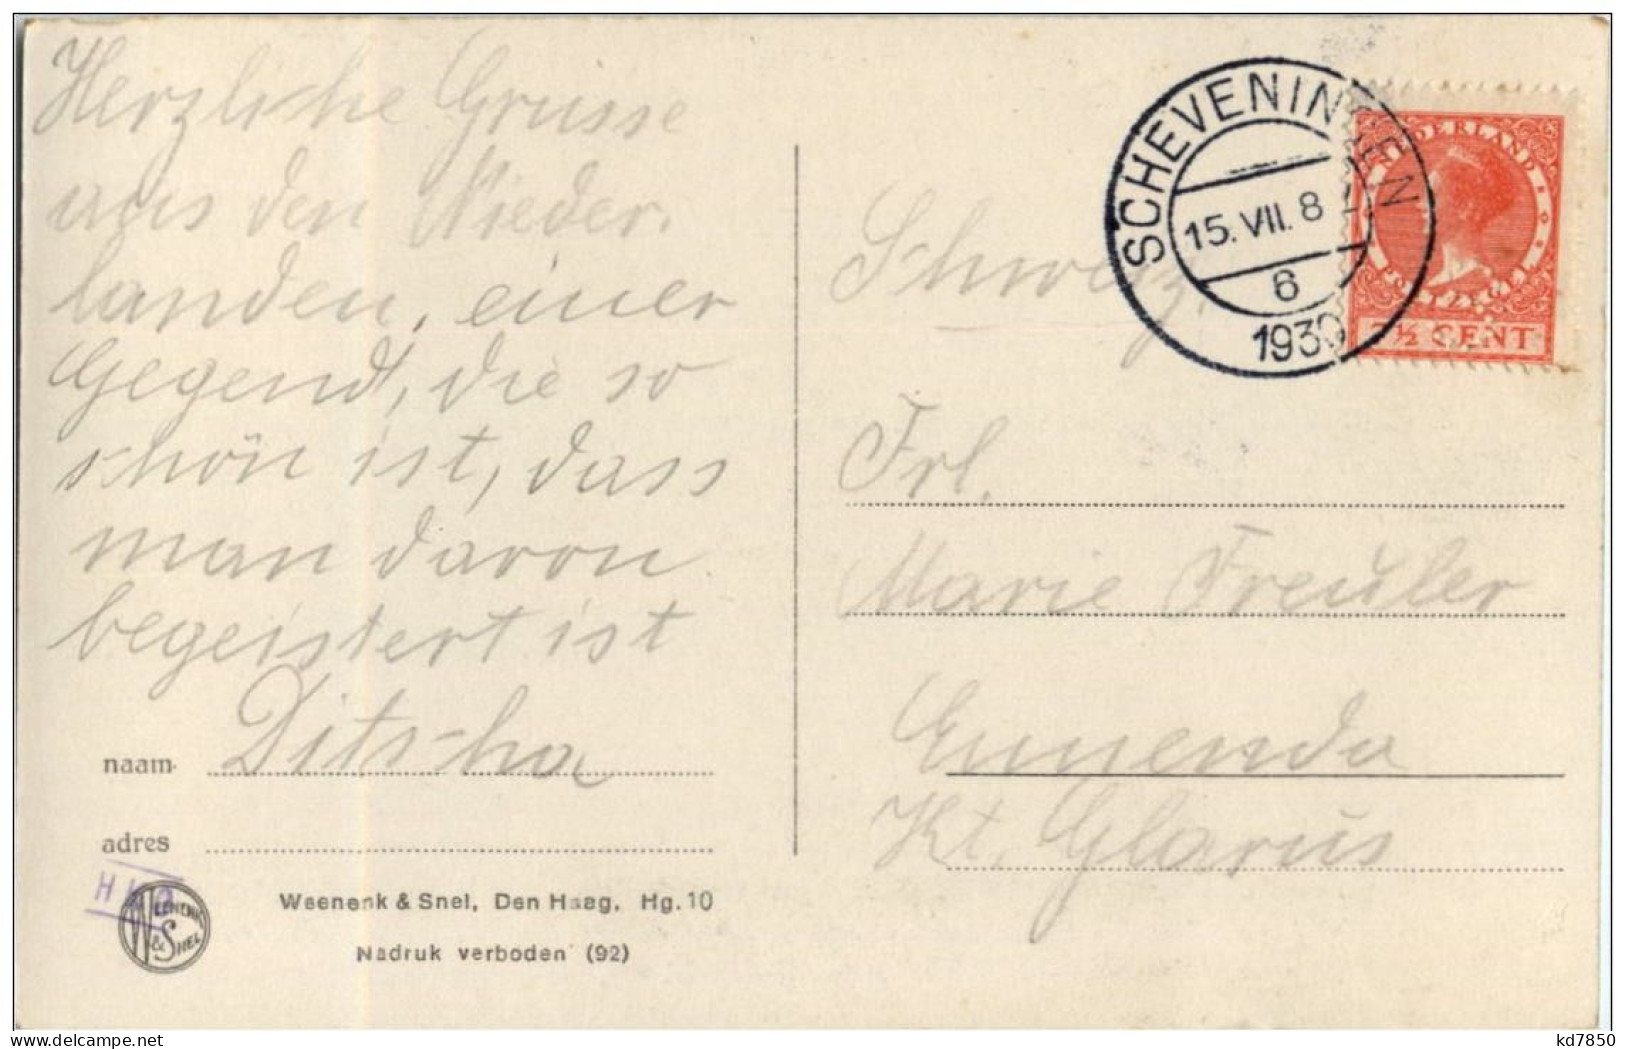 Herzliche Grüsse
aus den Nieder-
landen, einer
Gegend, die so
schön ist, dass
man davon
begeistert ist
naam Ditscha
adres
WEENENK
& SNEL
Weenenk & Snel, Den Haag. Hg. 10
Nadruk verboden (92)
SCHEVENINGEN
15. VII. 8
6
1930
NEDERLAND
7½ CENT
Schweiz.
Frl.
Marie Freuler
Ennenda
Kt. Glarus
www.delcampe.net
kd7850